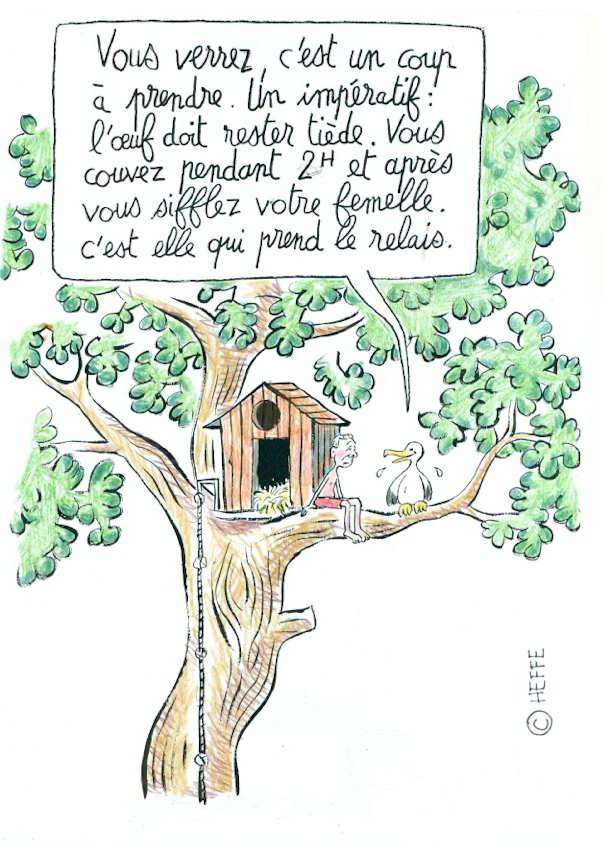 Vous verrez, c'est un coup
à prendre. Un impératif :
l'œuf doit rester tiède. Vous
couvez pendant 2H et après
vous sifflez votre femelle.
c'est elle qui prend le relais.
© HEFFE